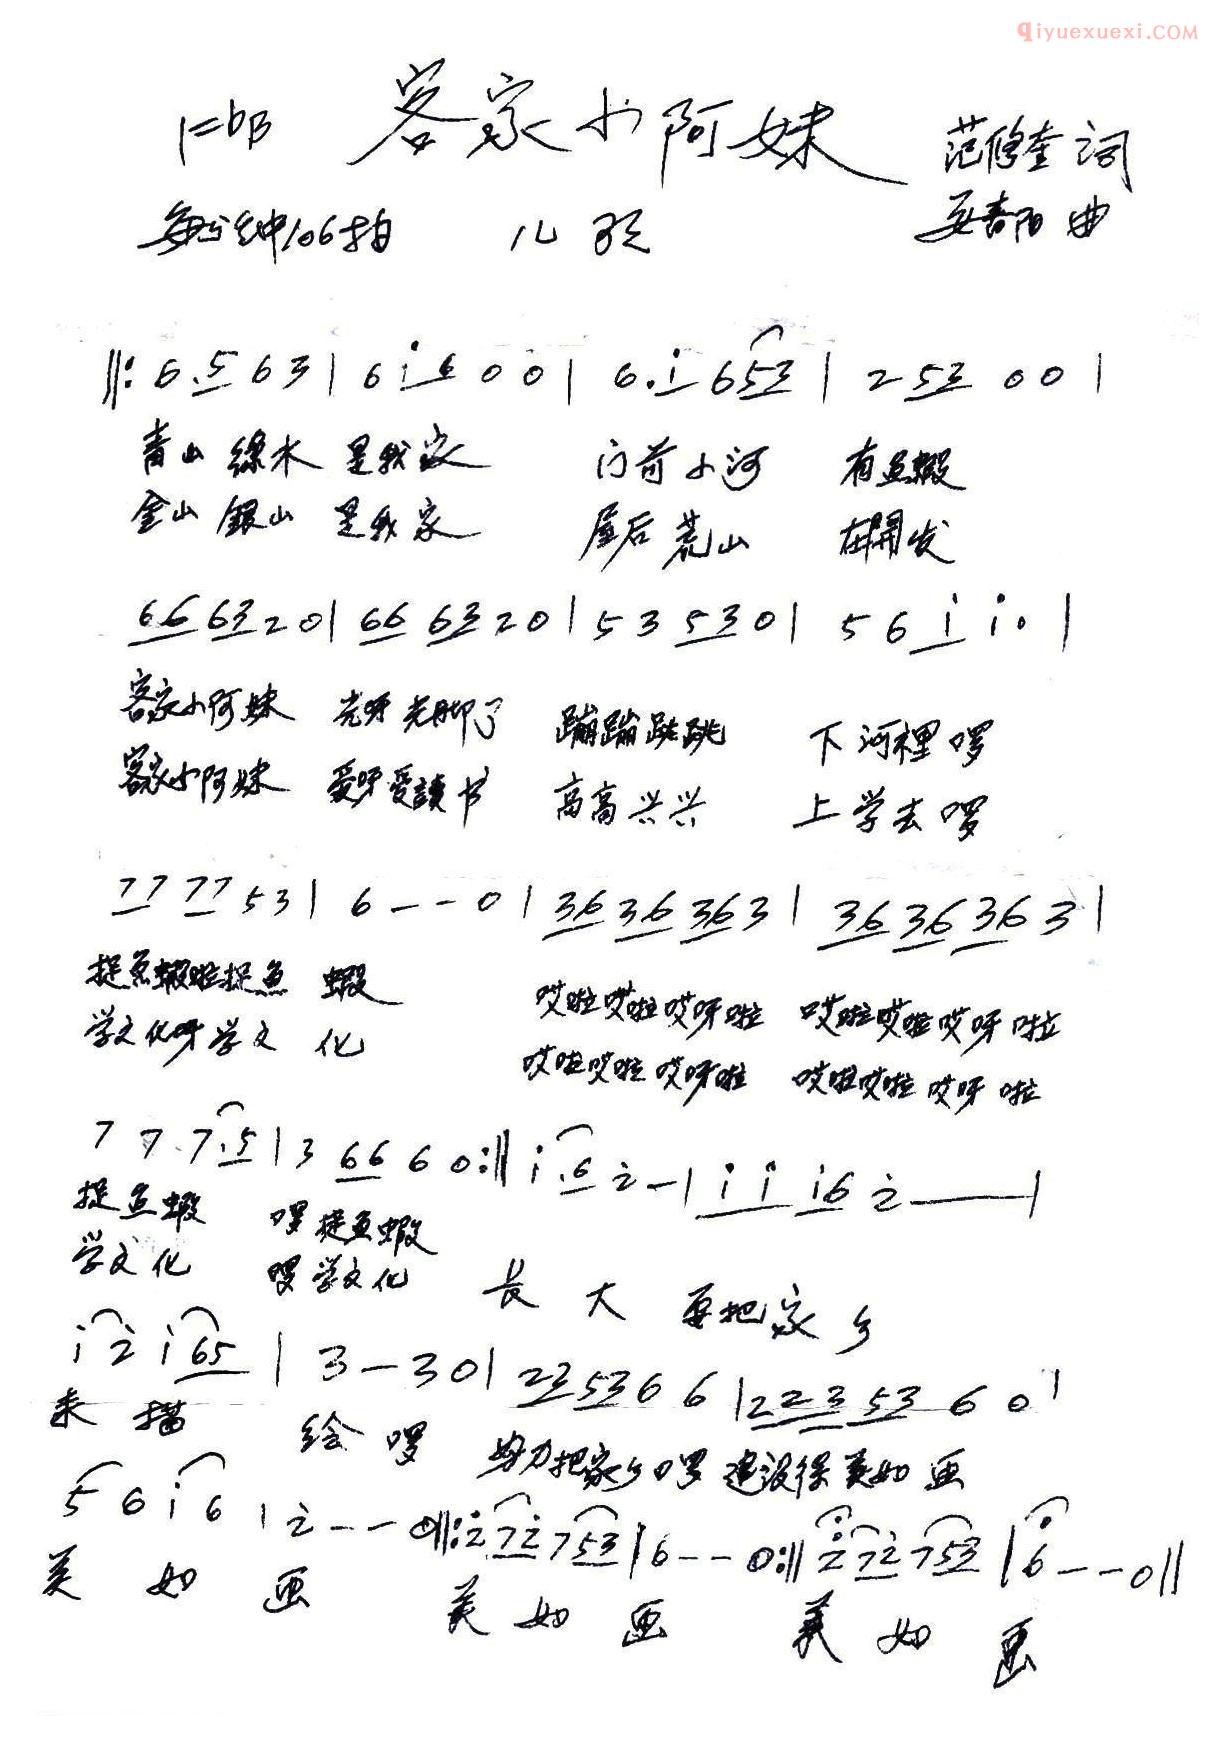 qiyuexuexi.COM
1=bB 客家小阿妹 范修奎 词
每分钟106拍 儿歌 安春阳 曲
‖: 6. 5 6 3 | 6 i 6 0 0 | 6. i 6 5 3 | 2 5 3 0 0 |
青山 綠水 是我家 门前小河 有鱼蝦
金山 銀山 是我家 屋后荒山 在開发
6 6 6 3 2 0 | 6 6 6 3 2 0 | 5 3 5 3 0 | 5 6 i i 0 |
客家小阿妹 光呀光脚丫 蹦蹦跳跳 下河裡啰
客家小阿妹 爱呀爱讀书 高高兴兴 上学去啰
7 7 7 7 5 3 | 6 - - 0 | 3 6 3 6 3 6 3 | 3 6 3 6 3 6 3 |
捉鱼蝦啦捉鱼 蝦 哎啦哎啦哎呀啦 哎啦哎啦哎呀啦
学文化呀学文 化 哎啦哎啦哎呀啦 哎啦哎啦哎呀啦
7 7 7. 5 | 3 6 6 6 0 :‖ i. 6 2 - | i i i 6 2 - |
捉鱼蝦 啰捉鱼蝦
学文化 啰学文化 长大 要把家乡
i 2 i 6 5 | 3 - 3 0 | 2 3 5 3 6 6 | 2 2 3 5 3 6 0 |
来描 绘啰 努力把家乡啰 建设得美如画
5 6 i 6 | 2 - - 0 ‖: 2 7 2 7 5 3 | 6 - - 0 :‖ 2 7 2 7 5 3 | 6 - - 0 ‖
美如画 美如画 美如画